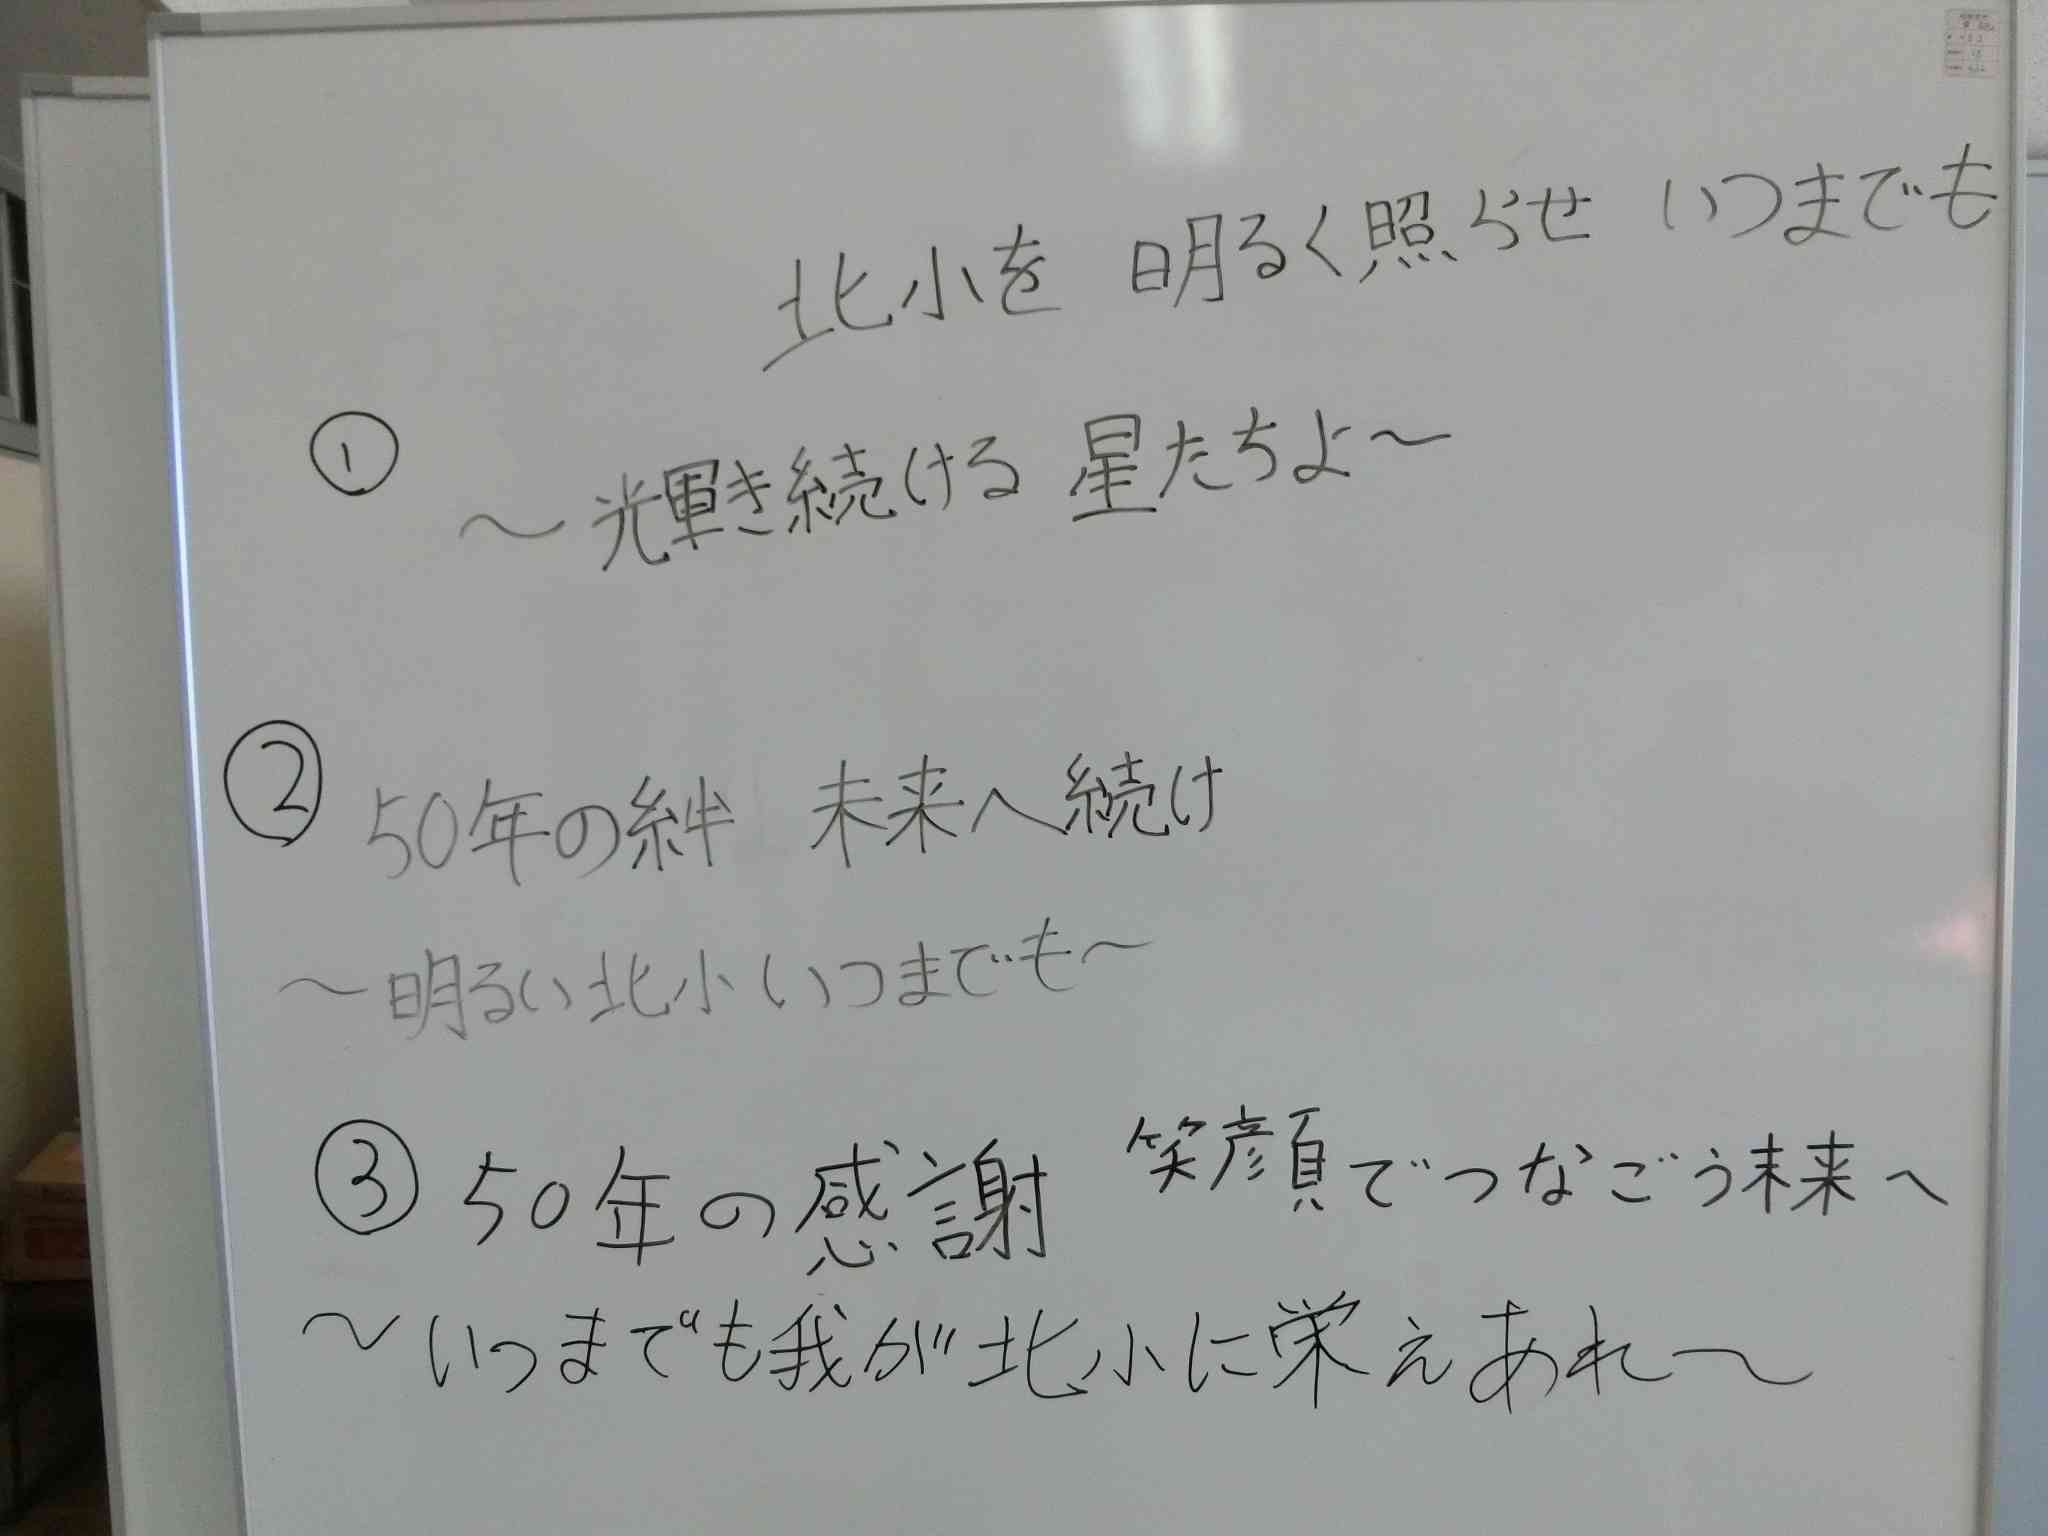 北小を 明るく照らせ いつまでも
①
～光輝き続ける 星たちよ～
② 50年の絆 未来へ続け
～明るい北小いつまでも～
③ 50年の感謝 笑顔でつなごう未来へ
～いつまでも我が北小に栄えあれ～